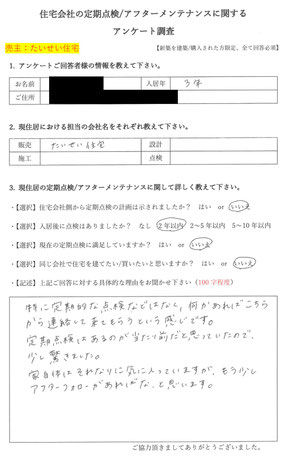 住宅会社の定期点検/アフターメンテナンスに関する
アンケート調査
売主:たいせい住宅
【新築を建築/購入された方限定、全て回答必須】
1. アンケートご回答者様の情報を教えて下さい。
お名前 入居年 3年
ご住所
2. 現住居における担当の会社名をそれぞれ教えて下さい。
販売 たいせい住宅 設計
施工 点検
3. 現住居の定期点検/アフターメンテナンスに関して詳しく教えて下さい。
・【選択】住宅会社側から定期点検の計画は示されましたか? はい or いいえ
・【選択】入居後に点検はありましたか? なし 2年以内 2~5年以内 5~10年以内
・【選択】現在の定期点検に満足していますか? はい or いいえ
・【選択】同じ会社で住宅を建てたい/買いたいと思いますか? はい or いいえ
・【記述】上記ご回答に対する具体的な理由をお聞かせ下さい(100字程度)
特に定期的な点検などはなし、何かあればこちら
から連絡して来てもらうという感じです。
定期点検はあるのが当たり前だと思っていたので、
少し驚きました。
家自体はそれなりに気に入っていますが、もう少し
アフターフォローがあればな、と思います。
ご協力頂きましてありがとうございました。